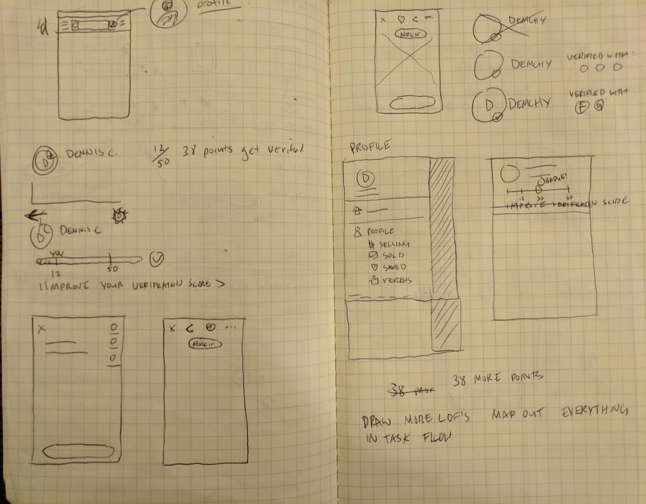 profile
DENNIS.C.
12/50
38 points get verified
DENNIS C
YOU
12
50
IMPROVE YOUR VERIFICATION SCORE >
X
X
<
...
X
<
...
DEMCHY
DEMCHY
VERIFIED WITH
D
DEMCHY
VERIFIED WITH
F G
PROFILE
D
PROFILE
SELLING
SOLD
SAVED
12 30 50
IMPROVE VERIFICATION SCORE
38
38 MORE POINTS
DRAW MORE LOF'S MAP OUT EVERYTHING
IN TASK FLOW